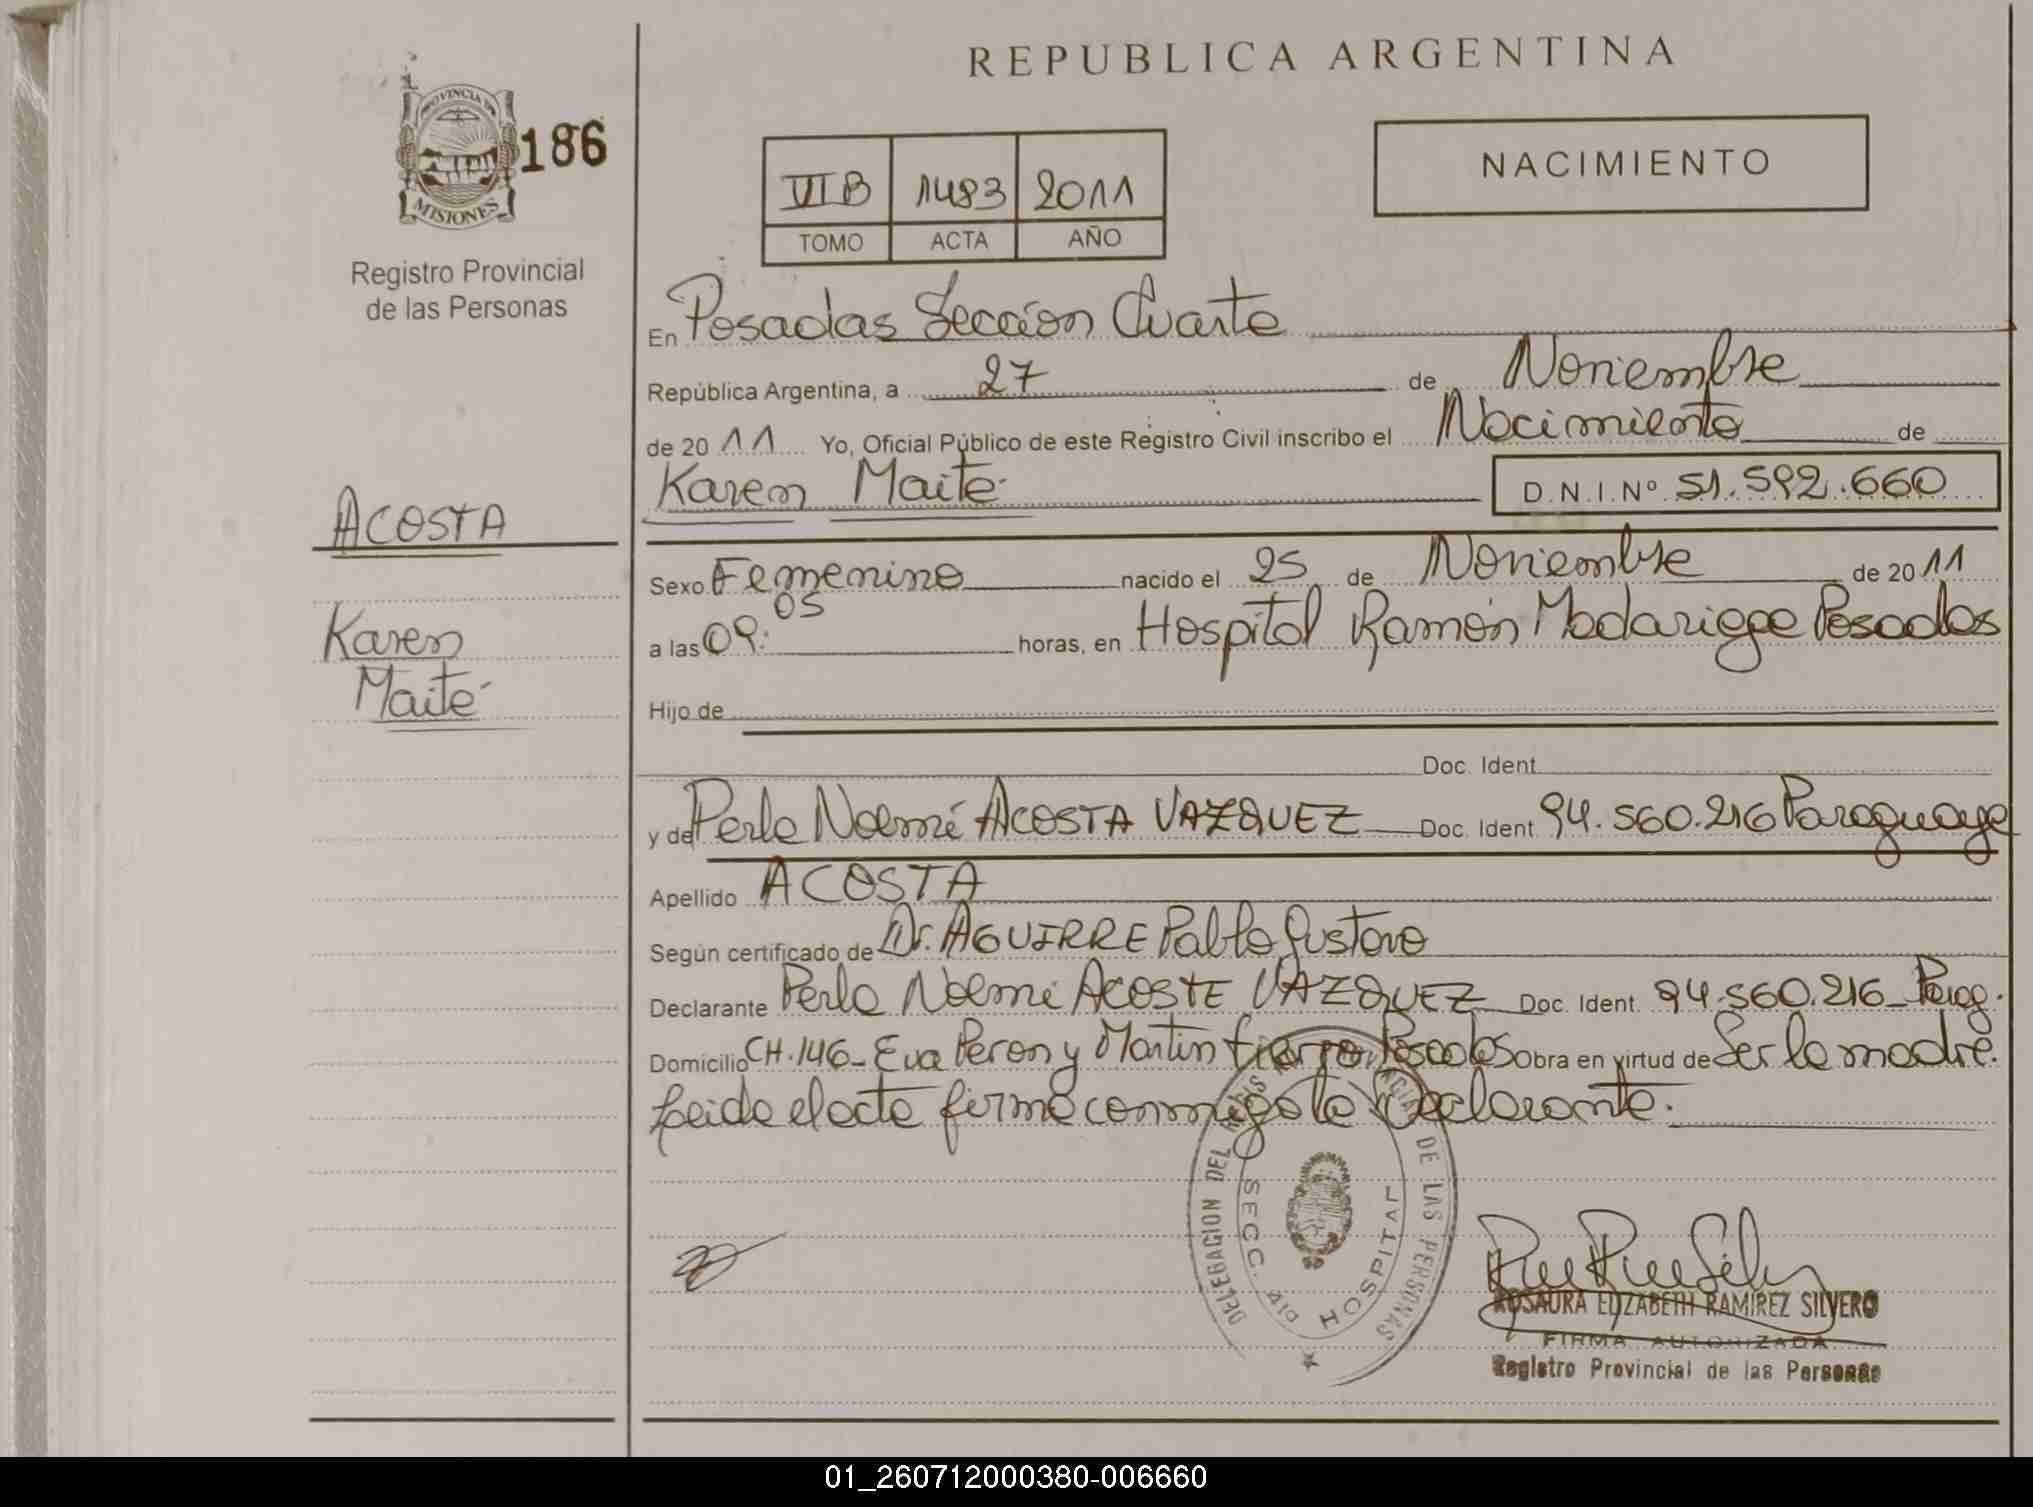 REPUBLICA ARGENTINA
PROVINCIA DE
MISIONES
186
Registro Provincial
de las Personas
VI B 1483 2011
TOMO ACTA AÑO
NACIMIENTO
En Posadas Sección Cuarta
República Argentina, a 27 de Noviembre
de 2011 Yo, Oficial Público de este Registro Civil inscribo el Nacimiento de
Karen Maité D.N.I.Nº 51.592.660
ACOSTA
Karen
Maité
Sexo Femenino nacido el 25 de Noviembre de 2011
a las 09:05 horas, en Hospital Ramón Madariaga Posadas
Hijo de
Doc. Ident.
y de Perla Noemí ACOSTA VAZQUEZ Doc. Ident. 94.560.216 Paraguaya
Apellido ACOSTA
Según certificado de Dr. AGUIRRE Pablo Gustavo
Declarante Perla Noemí ACOSTA VAZQUEZ Doc. Ident. 94.560.216 _ Parag.
Domicilio CH.146_ Eva Peron y Martin Fierro Posadas Obra en virtud de Ser la madre.
Leida el acta firma conmigo la declarante.
DELEGACION DEL DE LAS PERSONAS
SECC. HOSPITAL
ROSAURA ELIZABETH RAMIREZ SILVERO
FIRMA AUTORIZADA
Registro Provincial de las Personas
01_260712000380-006660